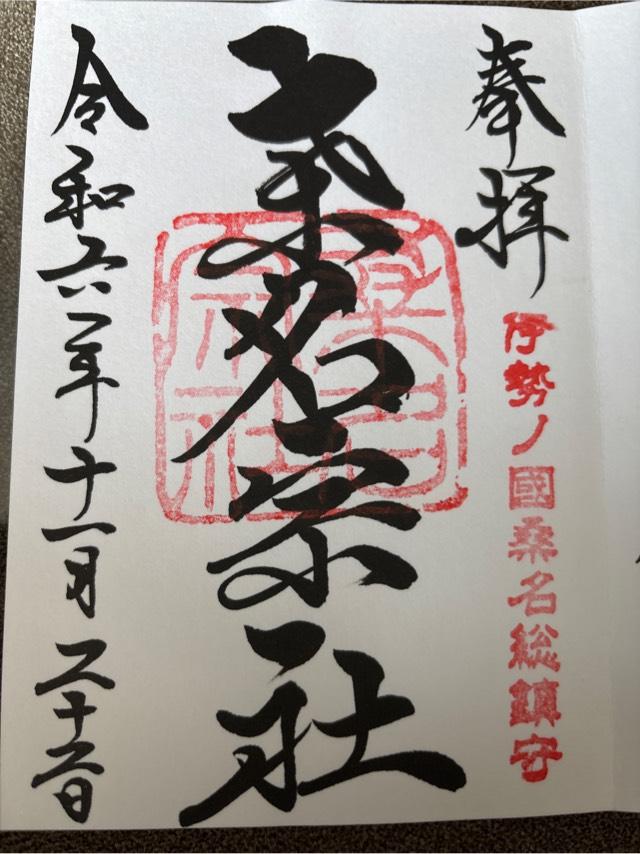 奉拝
伊勢ノ國桑名総鎮守
桑名宗社
桑名
宗社
令和六年十一月